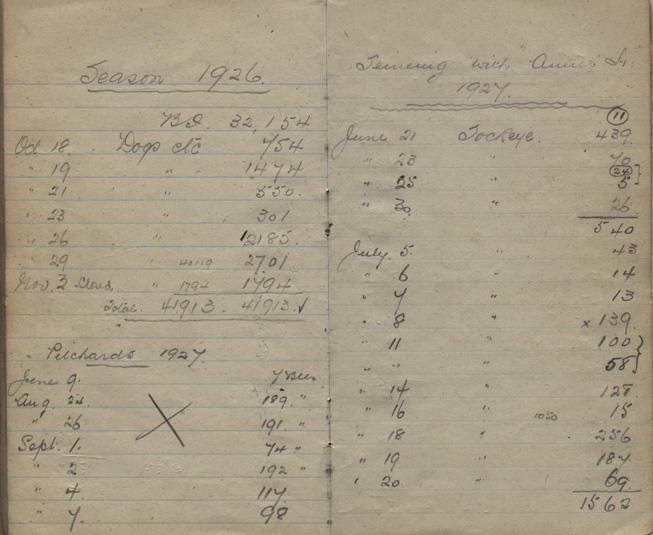 Season 1926.
B.F. 32,154
Oct 18 . Dogs etc 754
" 19 " " 1474
" 21 " 550.
" 23 " 301
" 26 " 2185.
" 29 " 40119 2701
Nov. 2 " 1794 1794
Total. 41913. 41913. ✓
Pilchards 1927.
June 9.
Aug 24. 189. "
" 26 191. "
Sept. 1. 74 "
" 2 192 "
" 4 117
" 7. 98
Seining with "Annie"
1927.
11
June 21 Sockeye. 439.
" 23 " 70
24
" 25 " 5
" 30 " 26
540
July 5. 43
" 6 " 14
" 7 " 13
" 8 " x 139.
" 11 " 100
" " " 58
" 14 " 128.
" 16 " 1050 15
" 18 " 256
" 19 " 187.
" 20 " 69.
1562